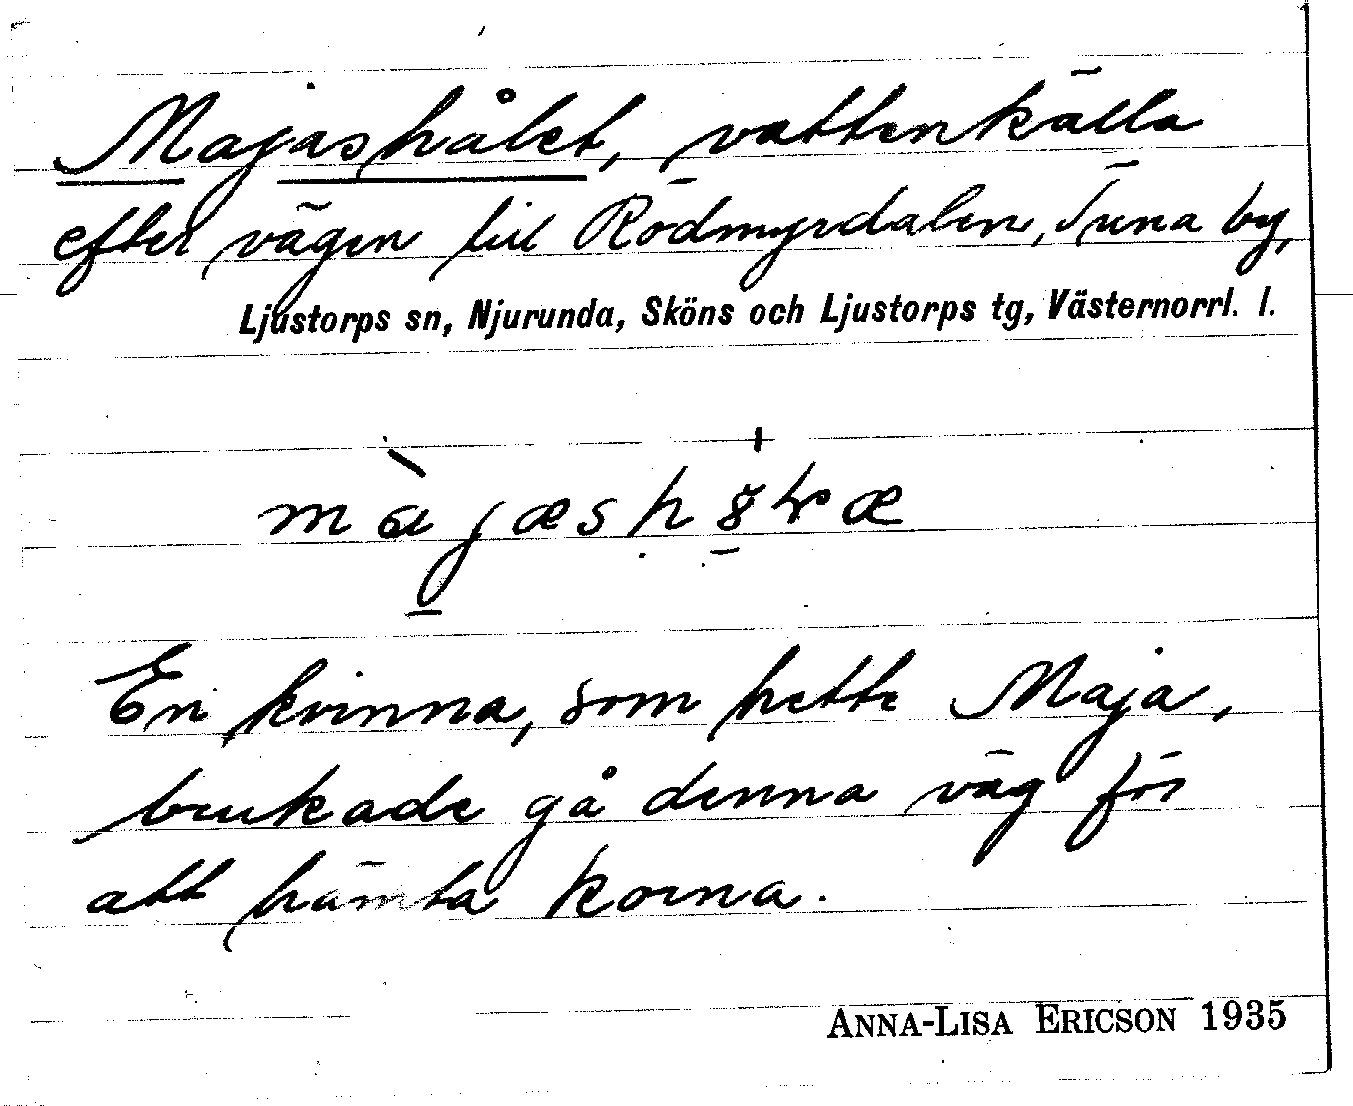 Majashålet, vattenkälla
efter vägen till Rödmyrdalen, Tuna by,
Ljustorps sn, Njurunda, Sköns och Ljustorps tg, Västernorrl. l.
En kvinna, som hette Maja,
brukade gå denna väg för
att hämta korna.
ANNA-LISA ERICSON 1935